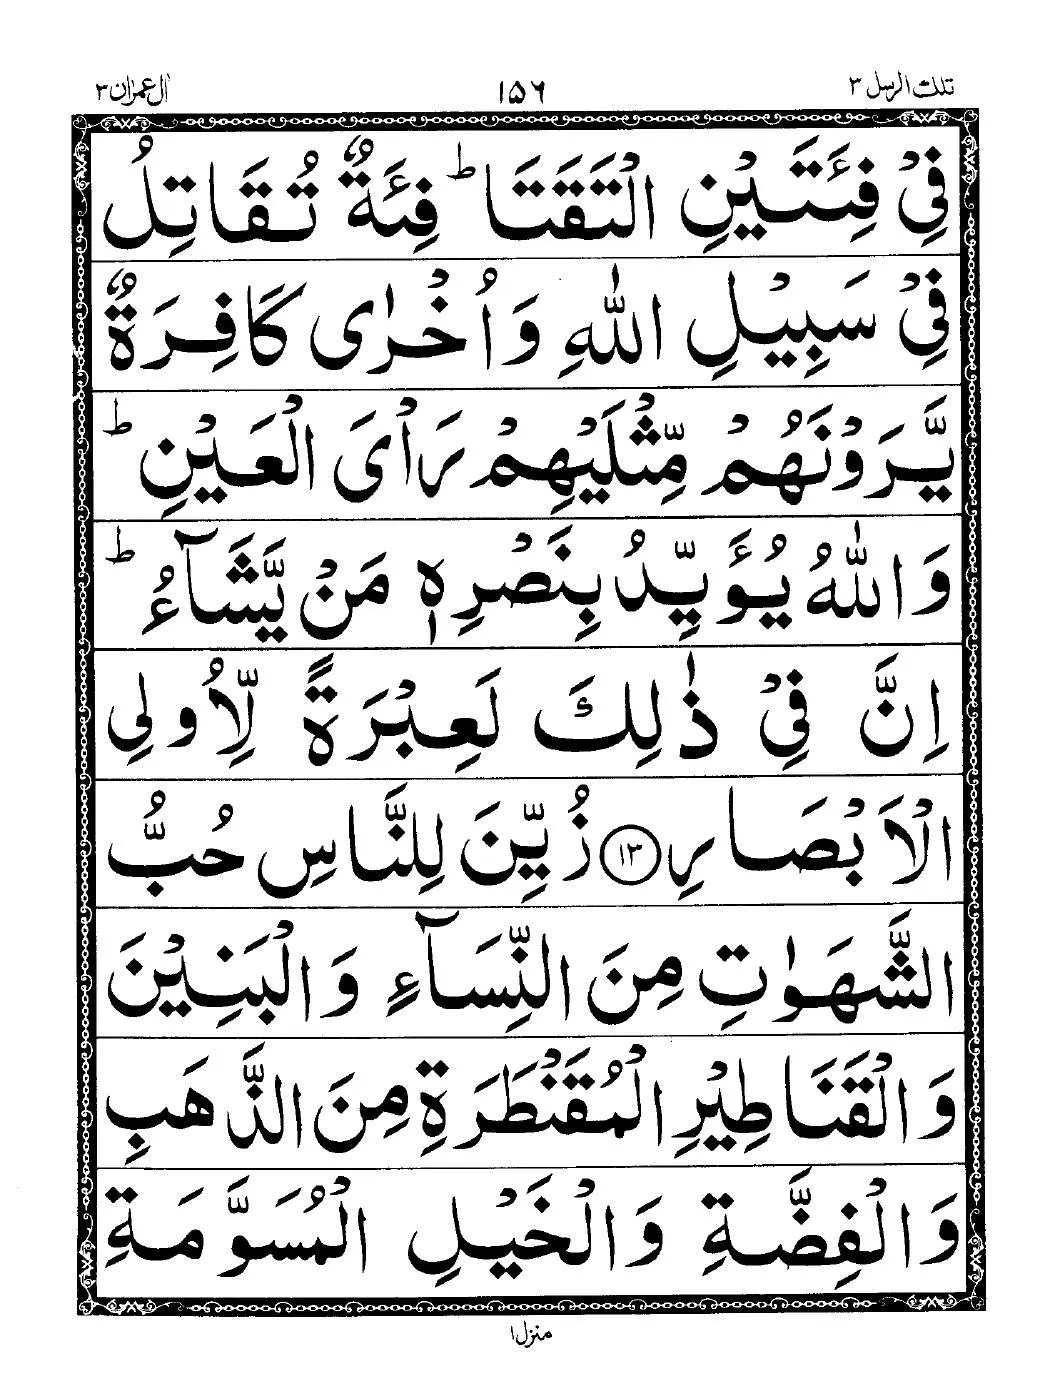 تلك الرسل ٣
١٥٦
اٰل عمرٰان ٣
فِیْ فِئَتَیْنِ الْتَقَتَا ؕ فِئَةٌ تُقَاتِلُ
فِیْ سَبِیْلِ اللّٰهِ وَاُخْرٰی كَافِرَةٌ
یَّرَوْنَهُمْ مِّثْلَیْهِمْ رَاْیَ الْعَیْنِ ؕ
وَاللّٰهُ یُؤَیِّدُ بِنَصْرِهٖ مَنْ یَّشَآءُ ؕ
اِنَّ فِیْ ذٰلِكَ لَعِبْرَةً لِّاُولِی
الْاَبْصَارِ ﴿١٣﴾ زُیِّنَ لِلنَّاسِ حُبُّ
الشَّهَوٰتِ مِنَ النِّسَآءِ وَالْبَنِیْنَ
وَالْقَنَاطِیْرِ الْمُقَنْطَرَةِ مِنَ الذَّهَبِ
وَالْفِضَّةِ وَالْخَیْلِ الْمُسَوَّمَةِ
منزل ١